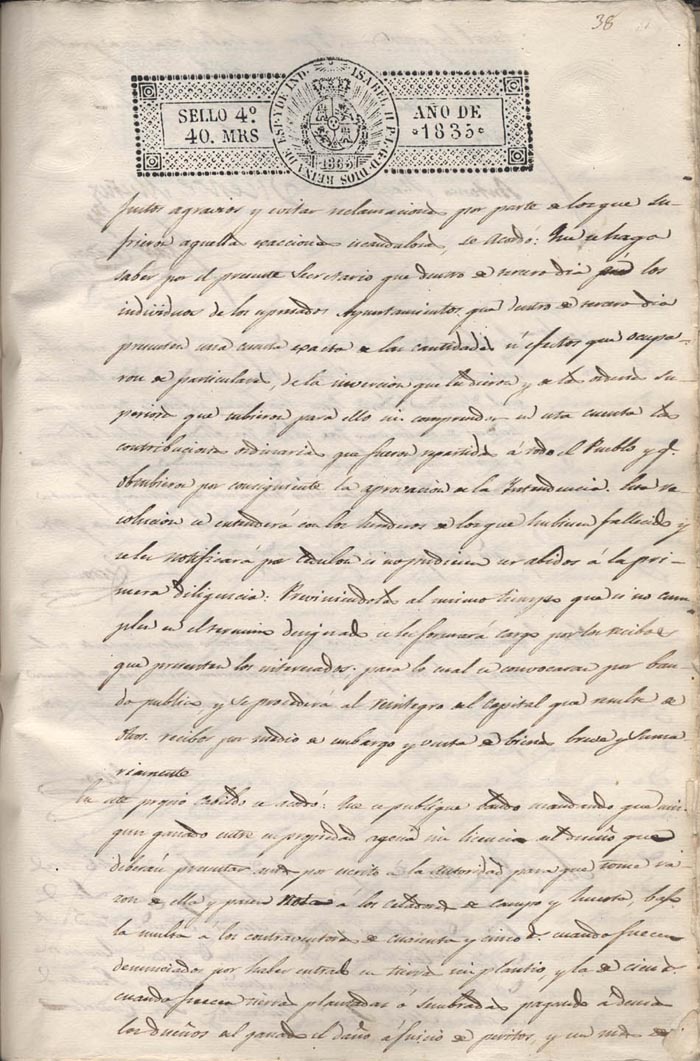 38
SELLO 4º
40. MRS
ISABEL II P. L. G. D. DIOS REINA DE ESP. Y DE IND.
1835
AÑO DE
1835
justos agravios y evitar reclamaciones por parte de los que su-
frieron aquellas exacciones escandalosas, se acordó: Que se haga
saber por el presente Secretario que dentro de tercero dia los
individuos de los expresados Ayuntamientos, que dentro de tercero dia
presenten una cuenta exacta de las cantidades ú efectos que ocupa-
ron de particulares, de la inversion que les dieron y de las ordenes su-
periores que tubieron para ello sin comprender en esta cuenta las
contribuciones ordinarias que fueron repartidas á todo el Pueblo y q.
obtubieron por consiguiente la aprovacion de la Intendencia. Esta re-
solucion se entenderá con los herederos de los que hubiesen fallecido y
se les notificará por cedulon si no pudiesen ser abidos á la pri-
mera diligencia: Previniendoles al mismo tiempo que si no cum-
plen en el termino designado se les formará cargo por los recibos
que presenten los interesados; para lo cual se convocaran por ban-
do publico y se procederá al reintegro del capital que resulte de
dhos. recibos por medio de embargo y venta de bienes breve y suma-
riamente
En este propio Cabildo se acordó: Que se publique bando mandando que nin-
gun ganado entre en propiedad agena sin licencia del dueño que
deberán presentar por escrito a la autoridad para que tome ra-
zon de ella y pasen nota á los celadores de campo y huerta, bajo
la multa á los contraventores de cuarenta y cinco d. cuando fuesen
denunciados por haber entrado en tierra sin plantio, y la de cien d.
cuando fuesen tierras plantadas ó sembradas pagando ademas
los dueños del ganado el daño, á juicio de peritos, y